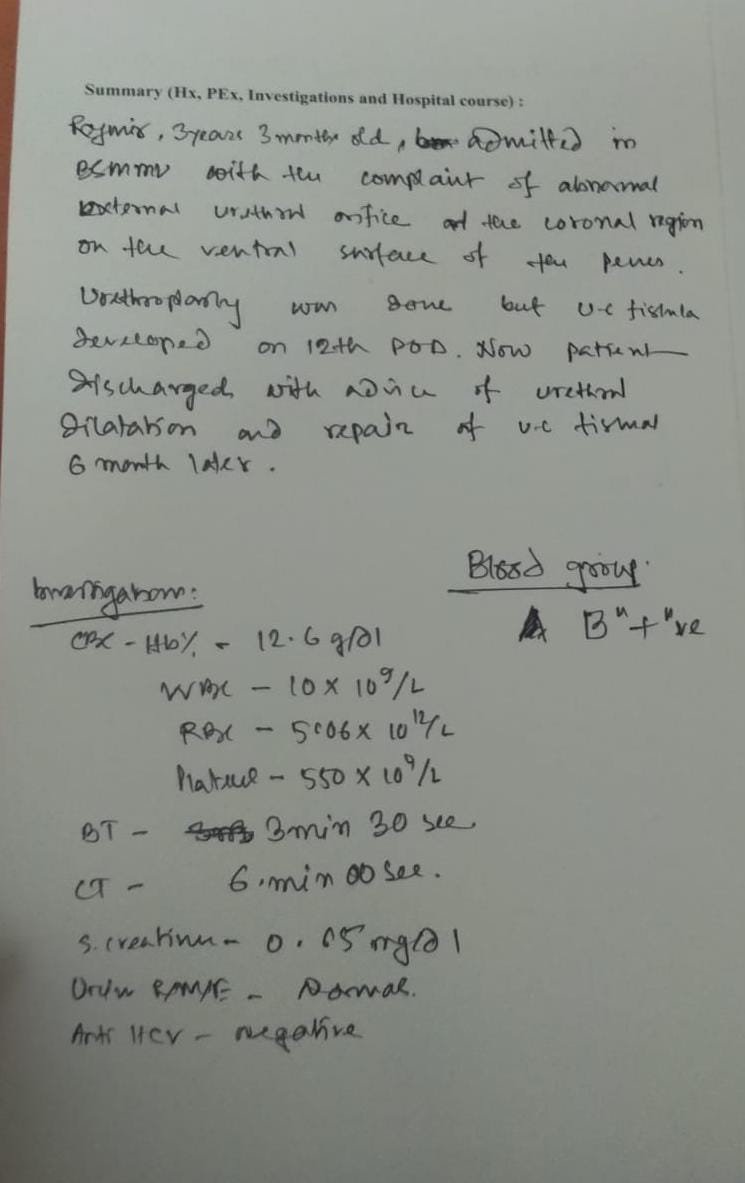 Summary (Hx, PEx, Investigations and Hospital course) :
3 years 3 months old, admitted in
BSMMU with the complaint of abnormal
external urethral orifice at the coronal region
on the ventral surface of the penes.
Urethroplasty was done but u-c fistula
developed on 12th POD. Now patient
discharged with advice of urethral
dilatation and repair of u-c
6 month later.
Blood group:
B "+"ve
Investigations:
CBC - Hb% - 12.6 g/dl
WBC - 10 x 10^9/L
RBC - x 10^12/L
Platelet - 550 x 10^9/L
BT - 3 min 30 sec
CT - 6 min 00 sec.
S. creatinine - mg/dl
Urine R/M/E - Normal.
Anti HCV - negative